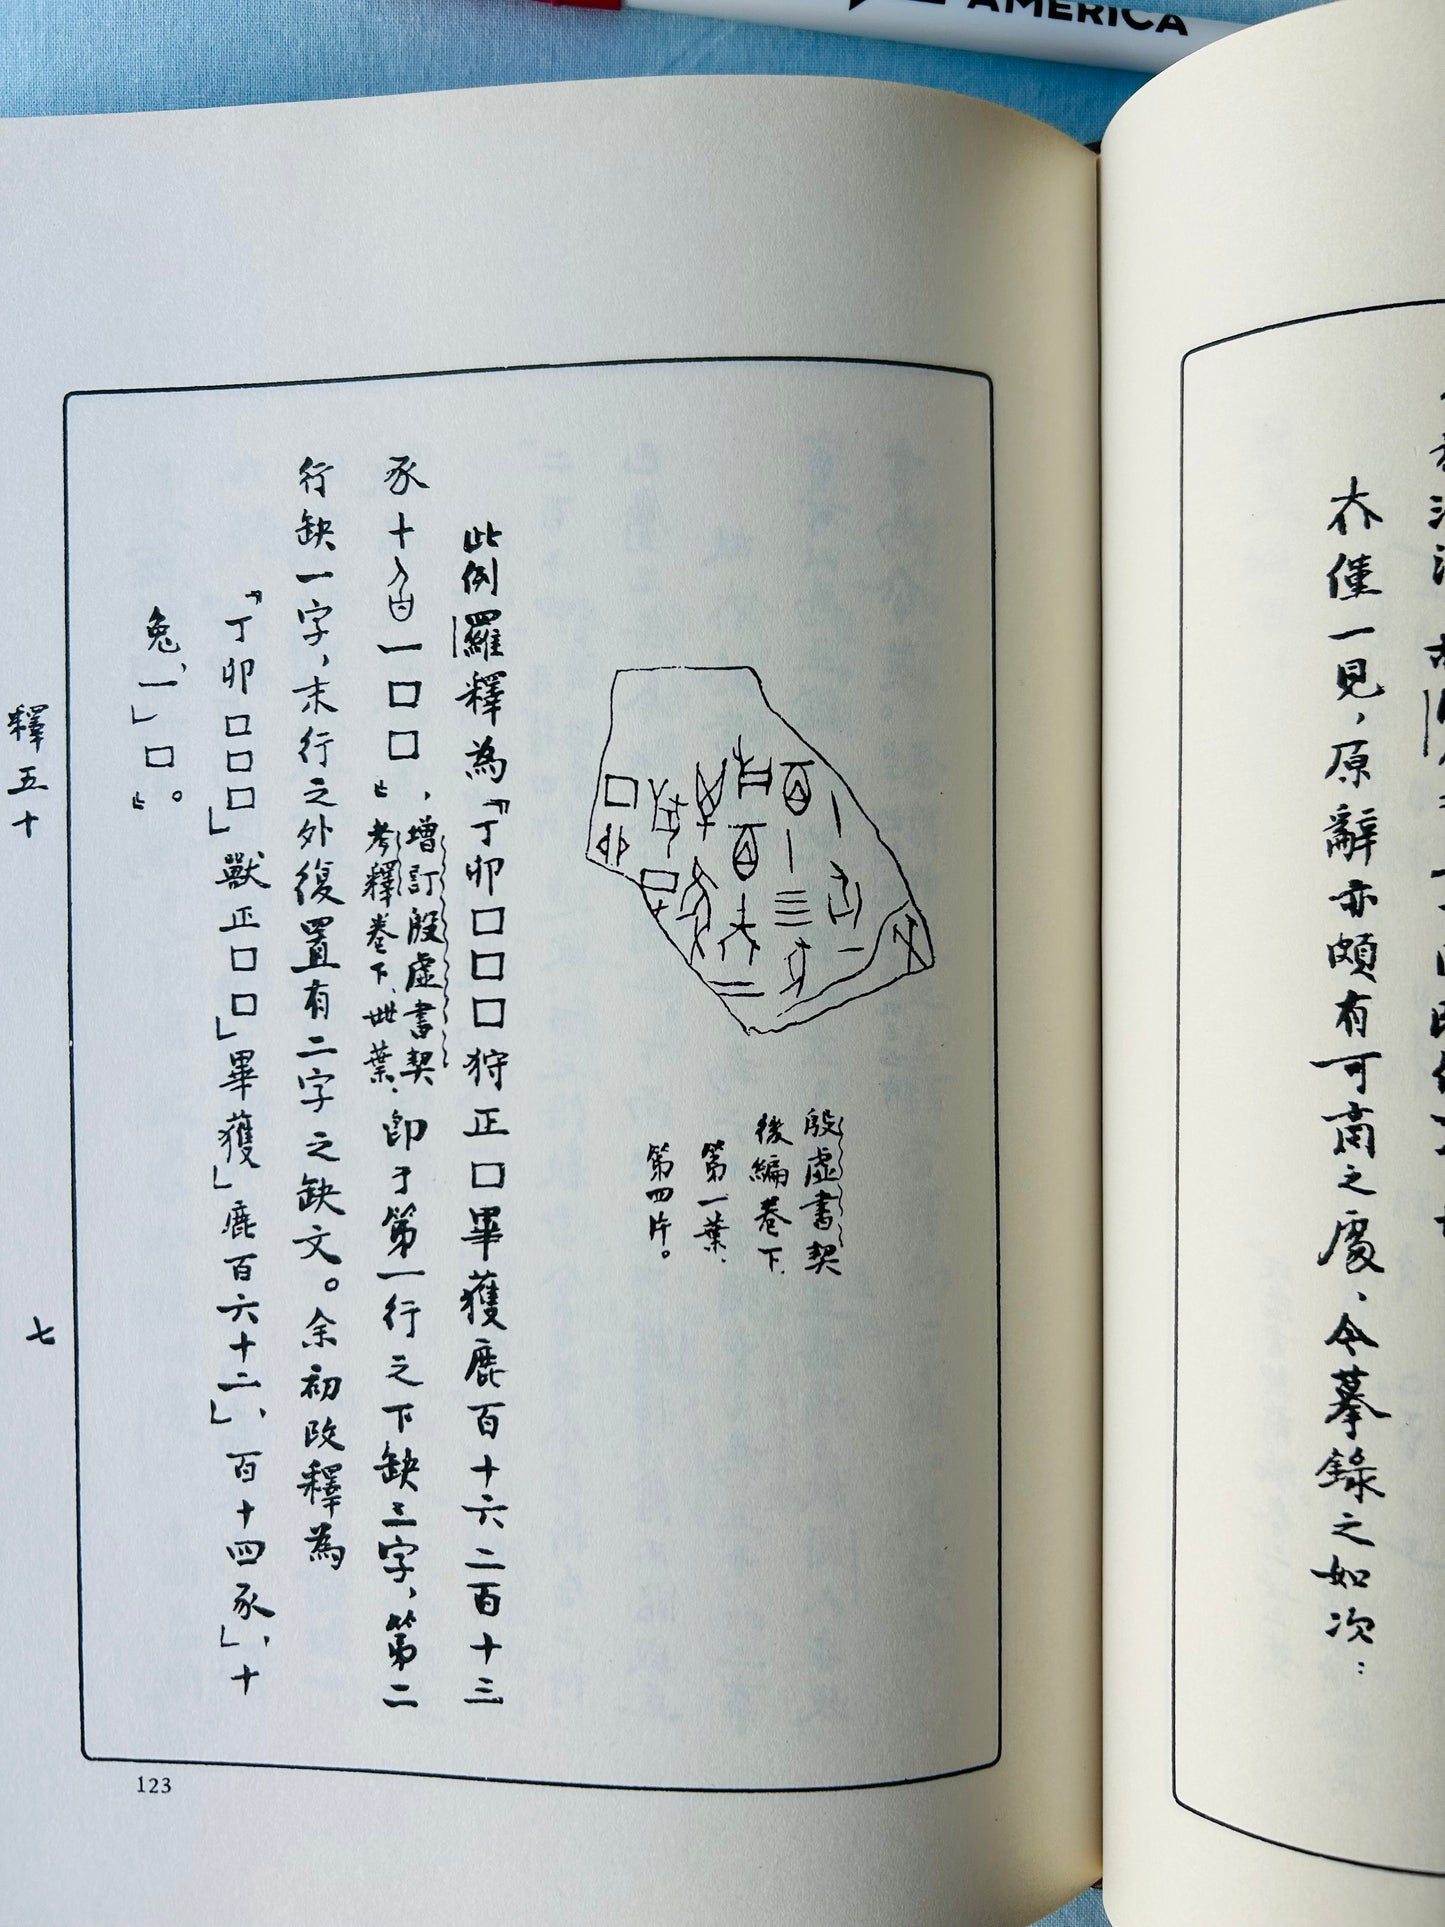 AMERICA
亦僅一見，原辭亦頗有可商之處、今摹錄之如次：
殷虛書契
後編卷下、
第一葉、
第四片。
此例羅釋為「丁卯□□□狩正□畢獲鹿百十六二百十三
豕十一□□」，增訂殷虛書契考釋卷下、卌葉、即于第一行之下缺三字，第二
行缺一字，末行之外復置有二字之缺文。余初改釋為
「丁卯□□□」獸正□□」畢獲」鹿百六十二」，百十四豕」，十
兔、一」□。」
釋五十
七
123